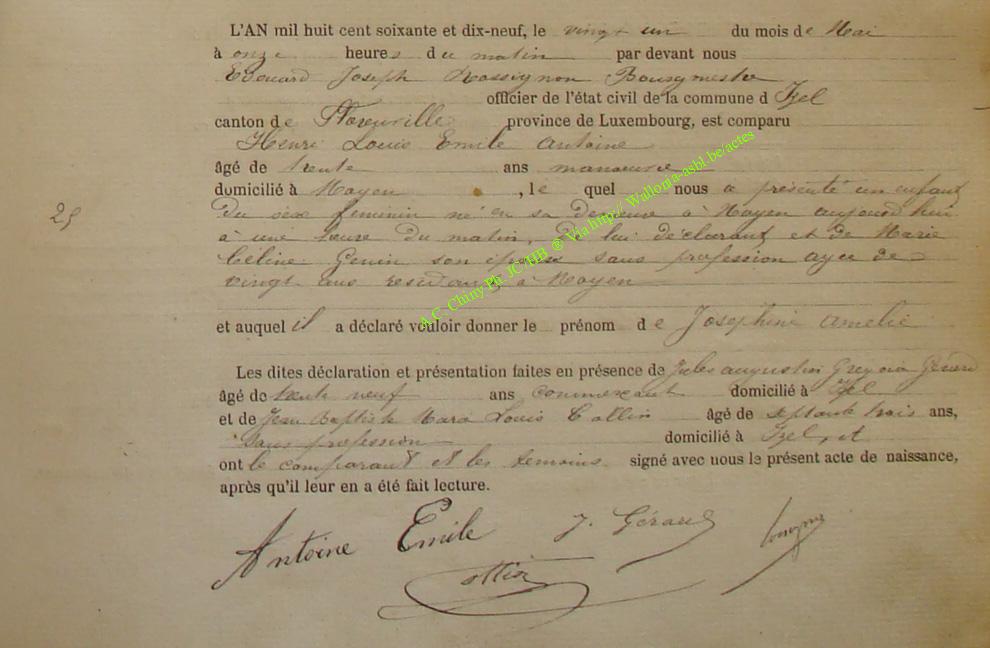 L'AN mil huit cent soixante et dix-neuf, le vingt un du mois de Mai
à onze heures du matin par devant nous
Edouard Joseph Rossignon Bourgmestre
officier de l'état civil de la commune d Izel
canton de Florenville province de Luxembourg, est comparu
Henri Louis Emile Antoine
âgé de trente ans manoeuvre
domicilié à Moyen, le quel nous a présenté un enfant
du sexe feminin né en sa demeure à Moyen aujourd'hui
à une heure du matin, de lui déclarant et de Marie
Céline Genin son épouse sans profession agée de
vingt ans residant à Moyen
25
et auquel il a déclaré vouloir donner le prénom de Josephine Amelie
Les dites déclaration et présentation faites en présence de Jules Augustin Grégoire Gérard
âgé de trente neuf ans commerçant domicilié à Izel
et de Jean Baptiste Louis Collin âgé de septante trois ans,
sans profession domicilié à Izel, et
ont le comparant et les temoins signé avec nous le présent acte de naissance,
après qu'il leur en a été fait lecture.
Antoine Emile J. Gérard
A.C. Chiny Ph. JC/HB ® Via http// Wallonia-asbl.be/actes